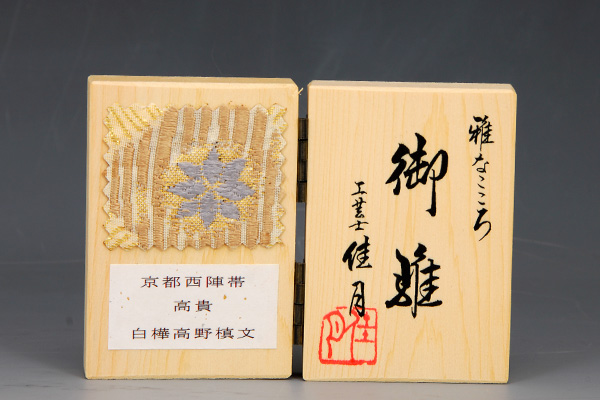 京都西陣帯
高貴
白樺高野槙文
雅なこころ
御雛
工芸士 佳月
佳月